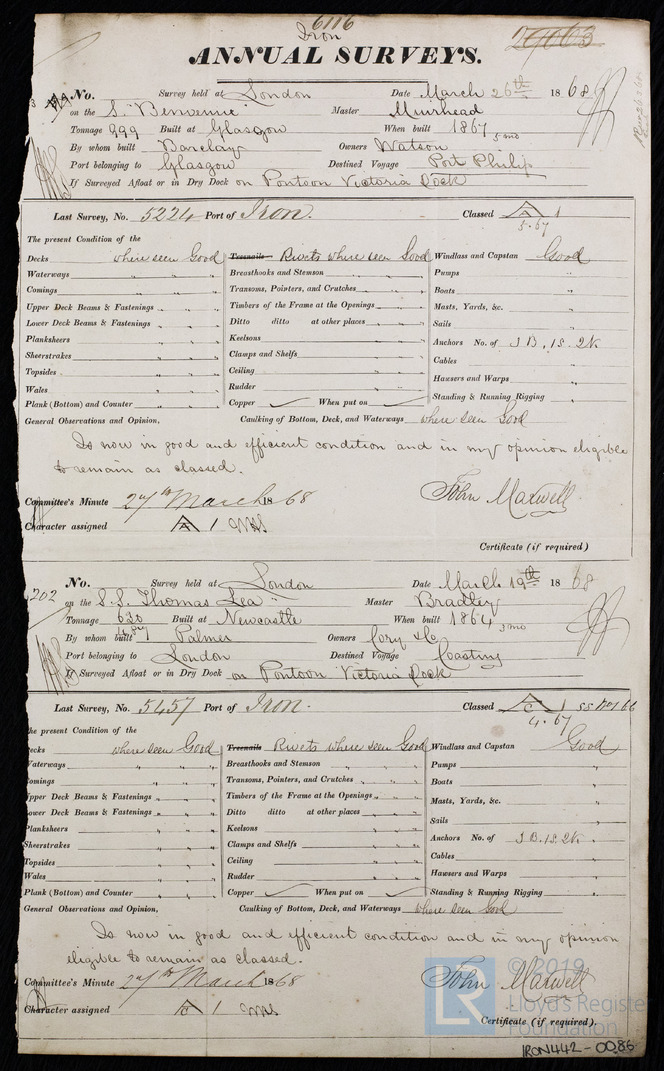 6116
Iron
29063
ANNUAL SURVEYS.
No. Survey held at London Date March 26th 1868
on the S. Benvenue Master Muirhead
Tonnage 999 Built at Glasgow When built 1867 5 mo
By whom built Barclay Owners Watson
Port belonging to Glasgow Destined Voyage Port Philip
If Surveyed Afloat or in Dry Dock on Pontoon Victoria Dock
Last Survey, No. 5224 Port of Iron. Classed A 1
5.67
The present Condition of the
Decks where seen Good Treenails Rivets where seen Good Windlass and Capstan Good
Waterways " " " Breasthooks and Stemson " " " Pumps "
Comings " " " Transoms, Pointers, and Crutches " " " Boats "
Upper Deck Beams & Fastenings " " " Timbers of the Frame at the Openings " " " Masts, Yards, &c. "
Lower Deck Beams & Fastenings " " " Ditto ditto at other places " " " Sails "
Planksheers " " " Keelsons " " " Anchors No. of 3 B. 1S. 2K "
Sheerstrakes " " " Clamps and Shelfs " " " Cables "
Topsides " " " Ceiling " " " Hawsers and Warps "
Wales " " " Rudder " " " Standing & Running Rigging "
Plank (Bottom) and Counter " " " Copper When put on
General Observations and Opinion, Caulking of Bottom, Deck, and Waterways where seen Good
Is now in good and efficient condition and in my opinion eligible
to remain as classed.
Committee's Minute 27th March 1868 John Maxwell
Character assigned A 1
Certificate (if required)
202
No. Survey held at London Date March 19th 1868
on the S.S. Thomas Lea Master Bradley
Tonnage 630 Built at Newcastle When built 1864 3 mo
487
By whom built Palmer Owners Cory & Co
Port belonging to London Destined Voyage Coasting
If Surveyed Afloat or in Dry Dock on Pontoon Victoria Dock
Last Survey, No. 5457 Port of Iron. Classed C 1 SS No 1 66
4.67
The present Condition of the
Decks where seen Good Treenails Rivets where seen Good Windlass and Capstan Good
Waterways " " " Breasthooks and Stemson " " " Pumps "
Comings " " " Transoms, Pointers, and Crutches " " " Boats "
Upper Deck Beams & Fastenings " " " Timbers of the Frame at the Openings " " " Masts, Yards, &c. "
Lower Deck Beams & Fastenings " " " Ditto ditto at other places " " " Sails "
Planksheers " " " Keelsons " " " Anchors No. of 3 B. 1S. 2K "
Sheerstrakes " " " Clamps and Shelfs " " " Cables "
Topsides " " " Ceiling " " " Hawsers and Warps "
Wales " " " Rudder " " " Standing & Running Rigging "
Plank (Bottom) and Counter " " " Copper When put on
General Observations and Opinion, Caulking of Bottom, Deck, and Waterways where seen Good
Is now in good and efficient condition and in my opinion
eligible to remain as classed.
Committee's Minute 27th March 1868 John Maxwell
Character assigned C 1
Certificate (if required).
LR
© 2019
Lloyd's Register
Foundation
IRON442-0086